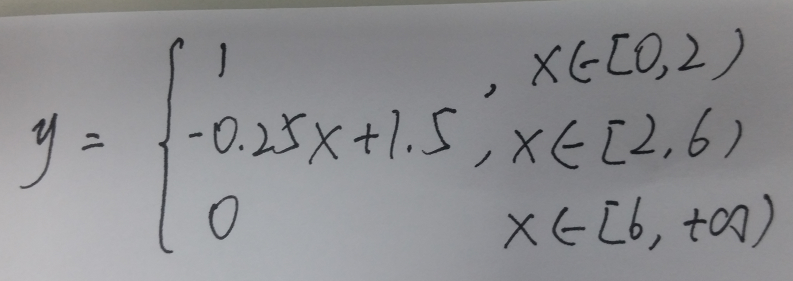 1 , x∈[0,2)
y = { -0.25x+1.5 , x∈[2,6)
0 x∈[6,+∞)